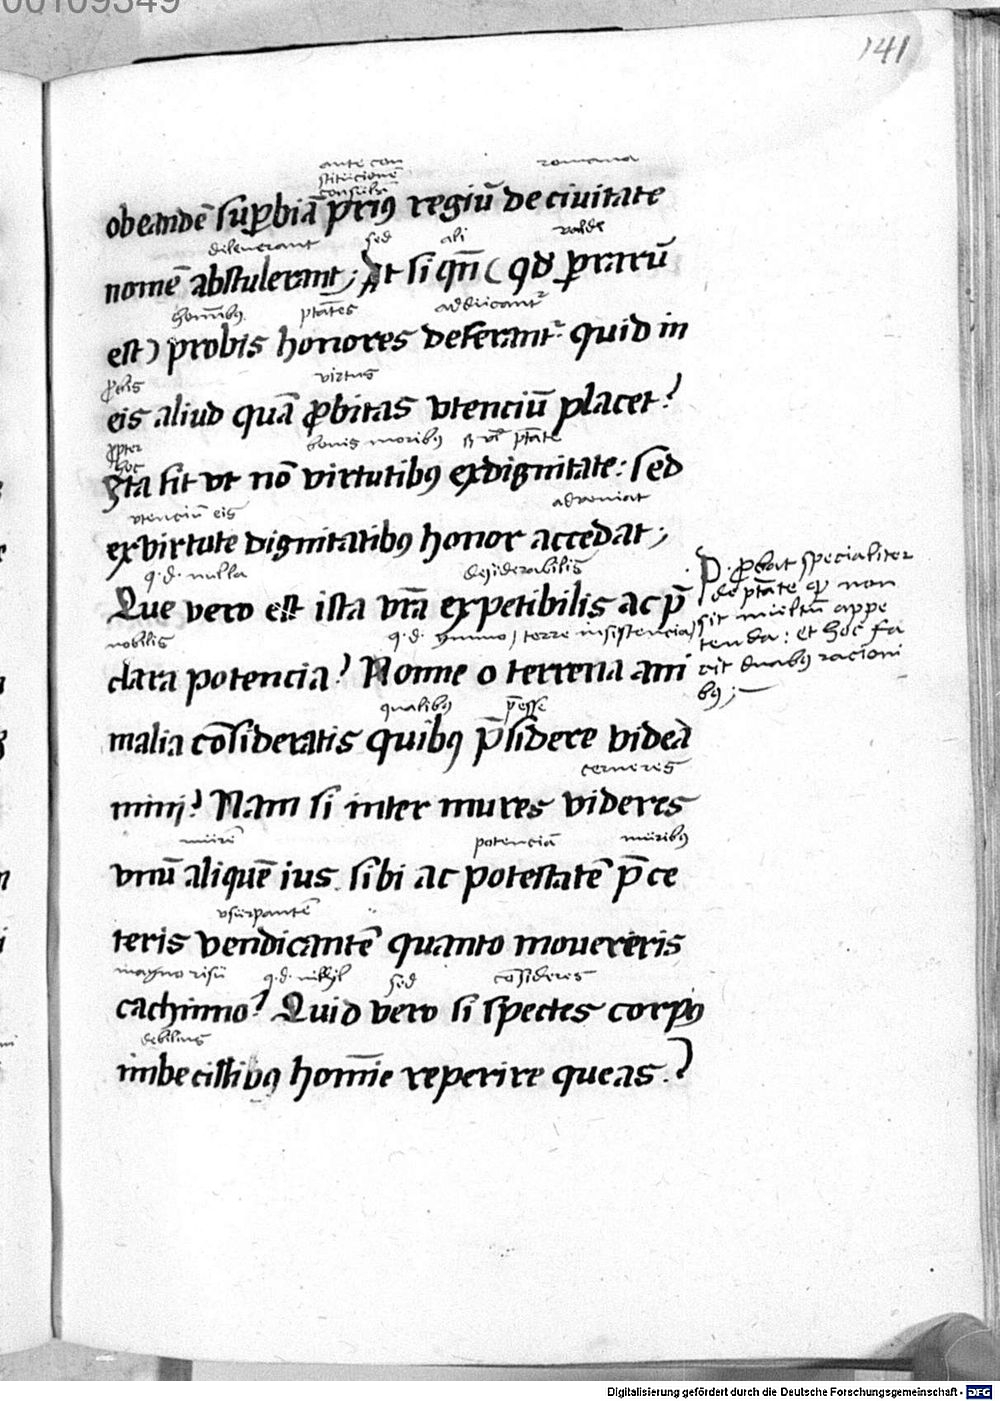 00109349
141
ante con
stitucionē
consulū
romana
ob eandē suꝑbiā prius regiū de ciuitate
deleuerant sed ali valde
nomē abstulerant; At si qn̄ (qd ꝑrarū
homībꝰ ptātes adducantᷣ
est) probis honores deferantᷣ quid in
ꝓbis virtus
eis aliud quā ꝓbitas vtenciū placet?
ꝓpter hoc bonis moribꝰ ptāte
Ita fit vt nō virtutibꝰ ex dignitate: sed
vtenciū eis adveniat
ex virtute dignitatibꝰ honor accedat;
q.d. nulla desiderabilis
Que vero est ista vr̄a expetibilis ac p̄
nobilis q.d. ymmo, terre insistencia
clara potencia? Nonne o terrena ani
qualibꝰ p̄esse
malia cōsideratis quibꝰ p̄sidere videā
cerneres
mini? Nam si inter mures videres
murē potenciā muribꝰ
vnū aliquē ius sibi ac potestatē p̄ ce
vsurpantē
teris vendicantē quanto mouereris
magno risu q.d. nichil sed cōsideres
cachinno? Quid vero si spectes corpꝰ
debilius
imbecillibꝰ homīe reperire queas?
P. ꝓbat specialiter
de ptāte qꝫ non
sit multū appe
tenda: et hoc fa
cit duabꝰ racioni
bꝰ;
Digitalisierung gefördert durch die Deutsche Forschungsgemeinschaft - DFG